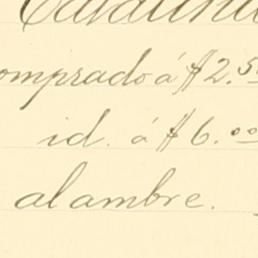 omprado á $2.50
id. á $6.00
alambre.